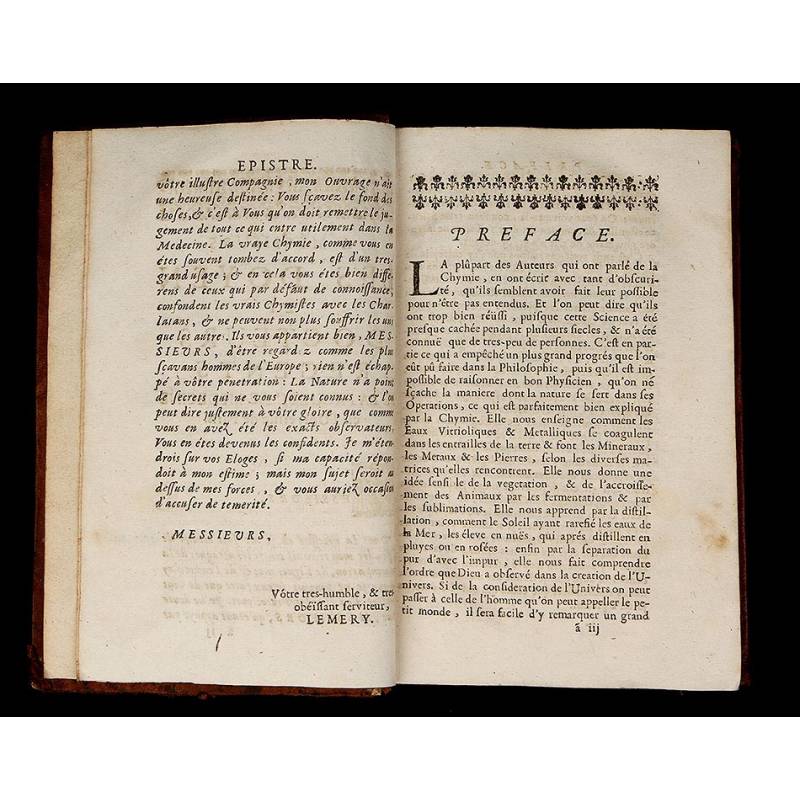 EPISTRE.
vôtre illustre Compagnie, mon Ouvrage n'ait
une heureuse destinée: Vous sçavez le fond des
choses, & c'est à Vous qu'on doit remettre le ju-
gement de tout ce qui entre utilement dans la
Medecine. La vraye Chymie, comme vous en
étes souvent tombez d'accord, est d'un tres-
grand usage; & en cela vous étes bien diffe-
rens de ceux qui par défaut de connoissance,
confondent les vrais Chymistes avec les Char-
latans, & ne peuvent non plus souffrir les uns
que les autre. Ils vous appartient bien, MES-
SIEURS, d'être regard z comme les plus
sçavans hommes de l'Europe; rien n'est échap-
pé à vôtre penetration: La Nature n'a point
de secrets qui ne vous soient connus: & l'on
peut dire justement à vôtre gloire, que comme
vous en avez été les exacts observateurs,
Vous en étes devenus les confidents. Je m'éten-
drois sur vos Eloges, si ma capacité répon-
doit à mon estime; mais mon sujet seroit au
dessus de mes forces, & vous auriez occasion
d'accuser de temerité.
MESSIEURS,
Vôtre tres-humble, & tres
obéissant serviteur,
LEMERY.
PREFACE.
LA plûpart des Auteurs qui ont parlé de la
Chymie, en ont écrit avec tant d'obscuri-
té, qu'ils semblent avoir fait leur possible
pour n'être pas entendus. Et l'on peut dire qu'ils
ont trop bien réüssi, puisque cette Science a été
presque cachée pendant plusieurs siecles, & n'a été
connuë que de tres-peu de personnes. C'est en par-
tie ce qui a empêché un plus grand progrés que l'on
eût pû faire dans la Philosophie, puis qu'il est im-
possible de raisonner en bon Physicien, qu'on ne
sçache la maniere dont la nature se sert dans ses
Operations, ce qui est parfaitement bien expliqué
par la Chymie. Elle nous enseigne comment les
Eaux Vitrioliques & Metalliques se coagulent
dans les entrailles de la terre & font les Mineraux,
les Metaux & les Pierres, selon les diverses ma-
trices qu'elles rencontrent. Elle nous donne une
idée sensi le de la vegetation, & de l'accroisse-
ment des Animaux par les fermentations & par
les sublimations. Elle nous apprend par la distil-
lation, comment le Soleil ayant rarefié les eaux de
la Mer, les éleve en nuës, qui aprés distillent en
pluyes ou en rosées: enfin par la separation du
pur d'avec l'impur, elle nous fait comprendre
l'ordre que Dieu a observé dans la creation de l'U-
nivers. Si de la consideration de l'Univers on peut
passer à celle de l'homme qu'on peut appeller le pe-
tit monde, il sera facile d'y remarquer un grand
ã iij